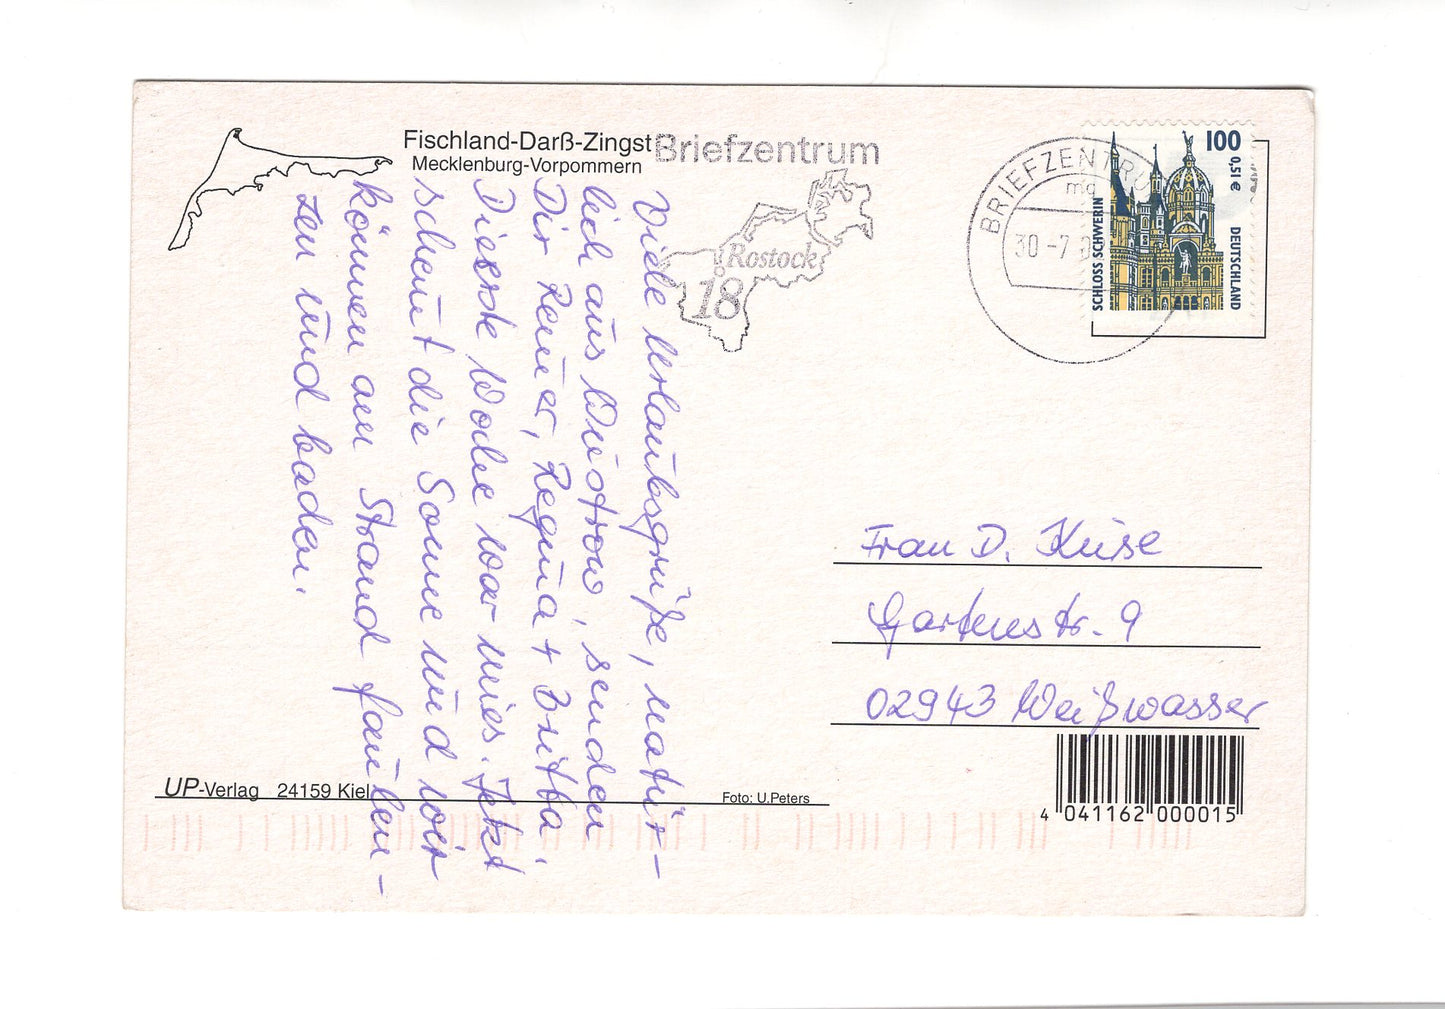 Fischland-Darß-Zingst
Mecklenburg-Vorpommern
Briefzentrum
Rostock
18
BRIEFZENTRU
mg
30.-7.
100
0,51 €
SCHLOSS SCHWERIN
DEUTSCHLAND
Viele Urlaubsgrüße, natür-
lich aus Wustrow, senden
Dir Reiner, Regina + Britta.
Dieerste Woche war mies. Jetzt
scheint die Sonne und wir
können am Strand faulen-
zen und baden.
Frau D.
Gartenstr. 9
02943 Weißwasser
UP-Verlag 24159 Kiel
Foto: U.Peters
4 041162 000015